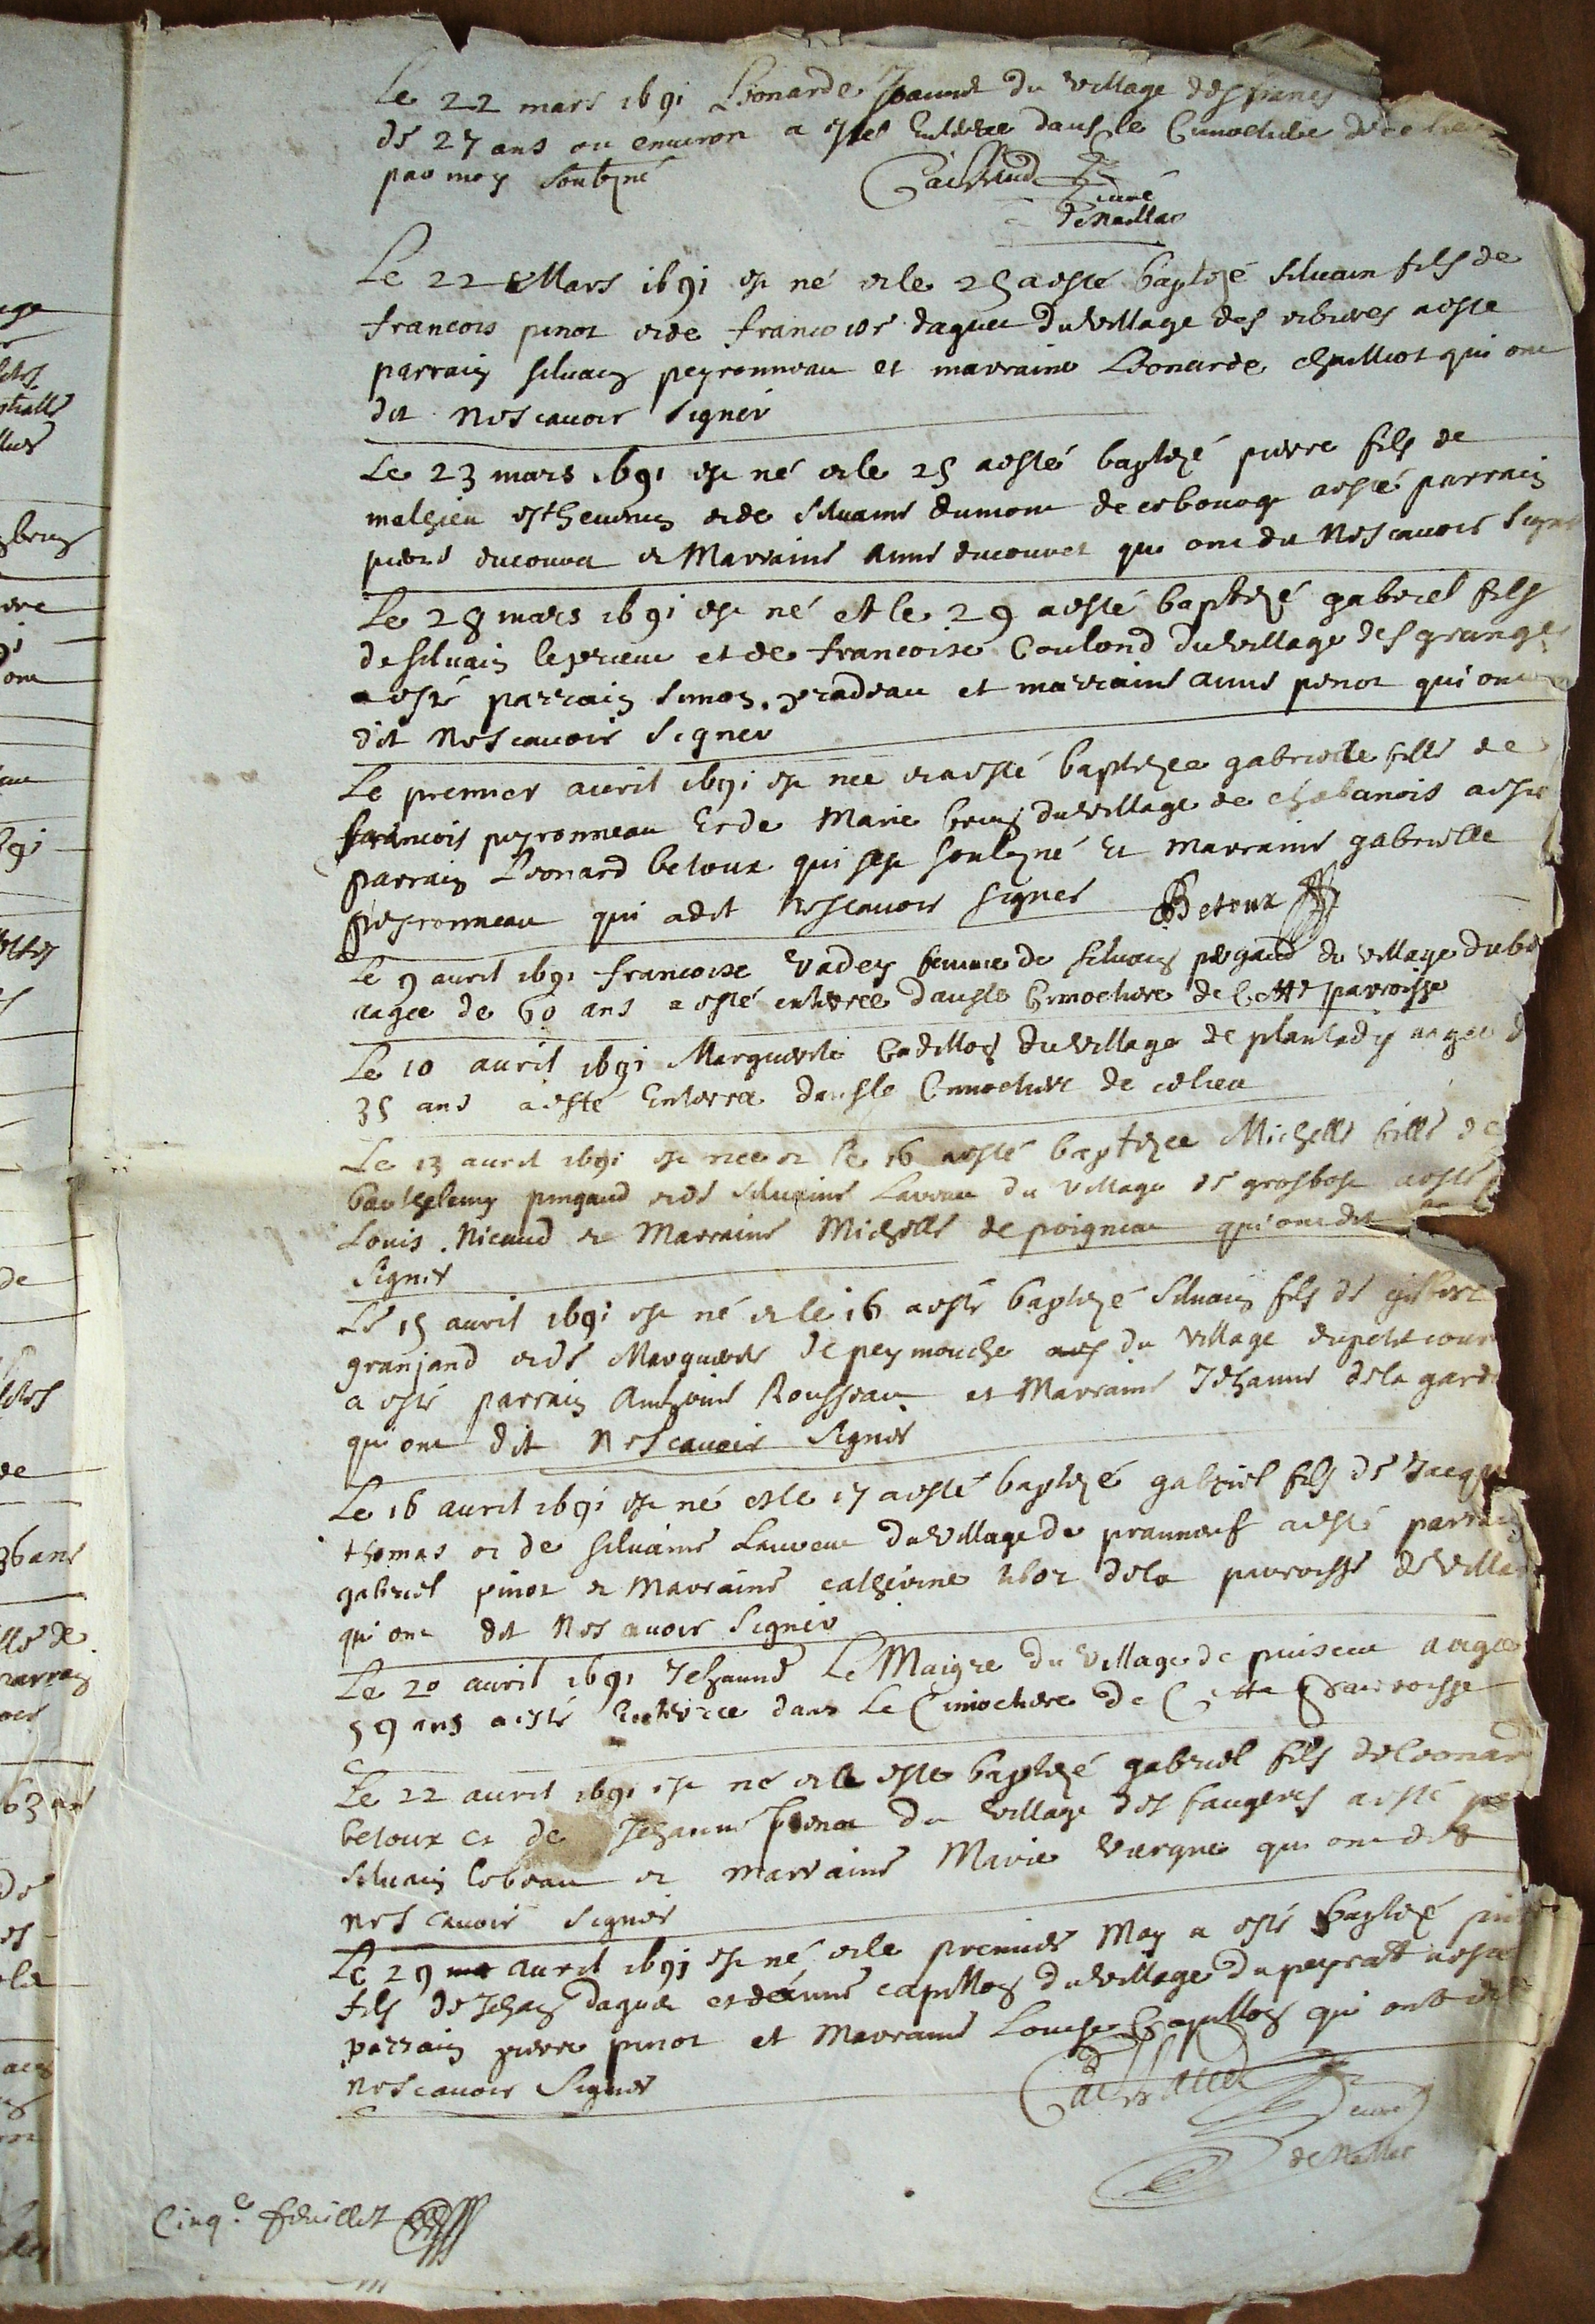 Le 22 mars 1691 Léonarde Jeanne du village des
de 27 ans ou environ a esté Enterrée dans le Cimectière de ce lieu
par moy soubzné
curé
de Naillac
Le 22 Mars 1691 est né et le 25 a esté baptizé silvain fils de
francois pinot et de francoise daguet du village des a esté
parrain silvain peyronneau et marraine Léonarde chailliot qui ont
dit ne scavoir signer
Le 23 mars 1691 est né et le 25 a esté baptizé pierre fils de
mathieu esthevenin et de silvaine dumont de a esté parrain
pierre ducouret et Marraine anne ducouret qui ont dit ne scavoir signer
Le 28 mars 1691 est né et le 29 a esté baptizé gabriel fils
de silvain leprieur et de francoise Coulond du village des granges
a esté parrain simon pradeau et marraine anne penot qui ont
dit ne scavoir signer
Le premier avril 1691 est née et a esté baptizée gabrielle fille de
francois peyronneau Et de Marie brug du village de chabanois a esté
parrain Léonard betoux qui sest soubzné Et marraine gabrielle
peyronneau qui a dit ne scavoir signer Betoux
Le 9 avril 1691 francoise Vadey femme de silvain pergaud du village
aagée de 60 ans a esté enterrée dans le Cimectiere de Cette parroisse
Le 10 avril 1691 Marguerite Cadillon du village de plantady aagée d
35 ans a esté Enterrée dans le Cimectiere de ce lieu
Le 13 avril 1691 est née et le 16 a esté baptizée Michelle fille de
barthelemy pingaud et de silvaine Laveau du village de grosbost a esté
Louis Nicaud et Marraine Michelle de poigneau qui ont dit
signer
Le 15 avril 1691 est né et le 16 a esté baptizé silvain fils de gilbert
granjand et de Marguerite de peymouche du village du petit cour
a esté parrain Anthoine Rousseau et Marraine Jehanne dela garde
qui ont dit ne scavoir signer
Le 16 avril 1691 est né et le 17 a esté baptizé gabriel fils de Jacques
thomas et de silvaine Lauveau du village de prauneuf a esté parrain
gabriel pinot et Marraine catherine dela parroisse de Villa
qui ont dit ne scavoir signer
Le 20 avril 1691 Jehanne Le Maigre du village de puiseau aagée
59 ans a esté Enterrée dans Le Cimectiere de Cette Parroisse
Le 22 avril 1691 est né et a esté baptizé gabriel fils de Leonard
betoux et de Jehanne penot du village des faugeres a esté
silvain lebeau et marraine Marie Vergne qui ont dit
ne scavoir signer
Le 29 avril 1691 est né et le premier May a esté baptizé
fils de Jehan daguet et de anne capillon du village du peyrat a esté
parrain pierre pinot et Marraine Louise Capillon qui ont dit
ne scavoir signer
curé
de Naillac
Cinqe feuillet